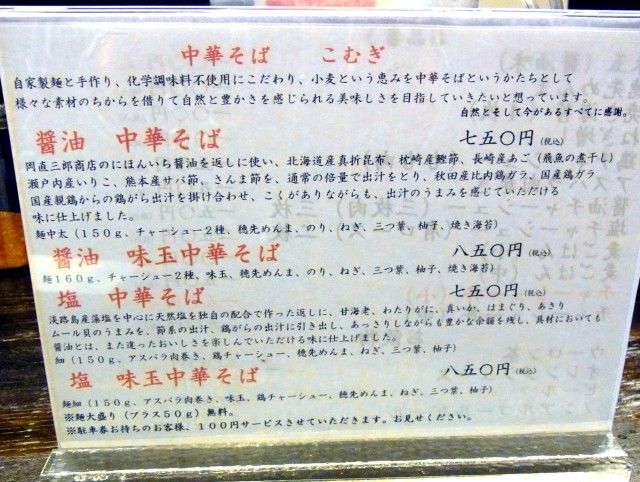 中華そば　こむぎ
自家製麺と手作り、化学調味料不使用にこだわり、小麦という恵みを中華そばというかたちとして
様々な素材のちからを借りて自然と豊かさを感じられる美味しさを目指していきたいと想っています。
自然とそして今があるすべてに感謝。
醤油　中華そば　七五〇円(税込)
岡直三郎商店のにほんいち醤油を返しに使い、北海道産真折昆布、枕崎産鰹節、長崎産あご（飛魚の煮干し）
瀬戸内産いりこ、熊本産サバ節、さんま節を、通常の倍量で出汁をとり、秋田産比内鶏ガラ、国産鶏ガラ
国産親鶏からの鶏がら出汁を掛け合わせ、こくがありながらも、出汁のうまみを感じていただける
味に仕上げました。
麺中太（150g、チャーシュー2種、穂先めんま、のり、ねぎ、三つ葉、柚子、焼き海苔）
醤油　味玉中華そば　八五〇円(税込)
麺160g、チャーシュー2種、味玉、穂先めんま、のり、ねぎ、三つ葉、柚子、焼き海苔）
塩　中華そば　七五〇円(税込)
淡路島産藻塩を中心に天然塩を独自の配合で作った返しに、甘海老、わたりがに、真いか、はまぐり、あさり
ムール貝のうまみを、節系の出汁、鶏がらの出汁に引き出し、あっさりしながらも豊かな余韻を残し、具材においても
醤油とは、また違ったおいしさを楽しんでいただける味に仕上げました。
細（150g、アスパラ肉巻き、鶏チャーシュー、穂先めんま、ねぎ、三つ葉、柚子）
塩　味玉中華そば　八五〇円(税込)
麺細（150g、アスパラ肉巻き、味玉、鶏チャーシュー、穂先めんま、ねぎ、三つ葉、柚子）
※麺大盛り（プラス50g）無料。
※駐車券お持ちのお客様、100円サービスさせていただきます。お見せください。